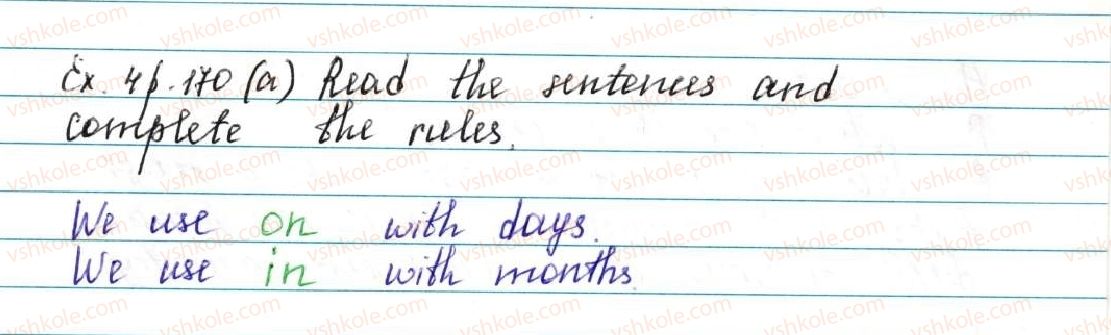 Ex. 4 p. 170 (a) Read the sentences and
complete the rules.
We use on with days.
We use in with months.